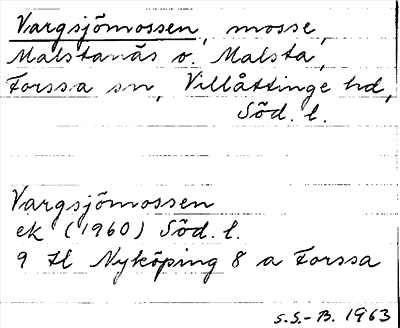 Vargsjömossen, mosse,
Malstanäs o. Malsta,
Forssa sn, Villåttinge hd,
Söd. l.
Vargsjömossen
ek (1960) Söd. l.
9 H Nyköping 8 a Forssa
S.S.-B. 1963